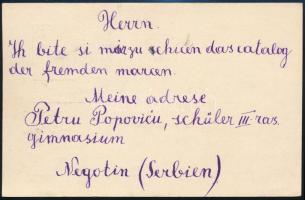 Herrn.
Ih bite si mir zu schicen das catalog
der fremden marcen.
Meine adrese
Petru Popoviču, schüler III ras.
gimnasium
Negotin (Serbien)